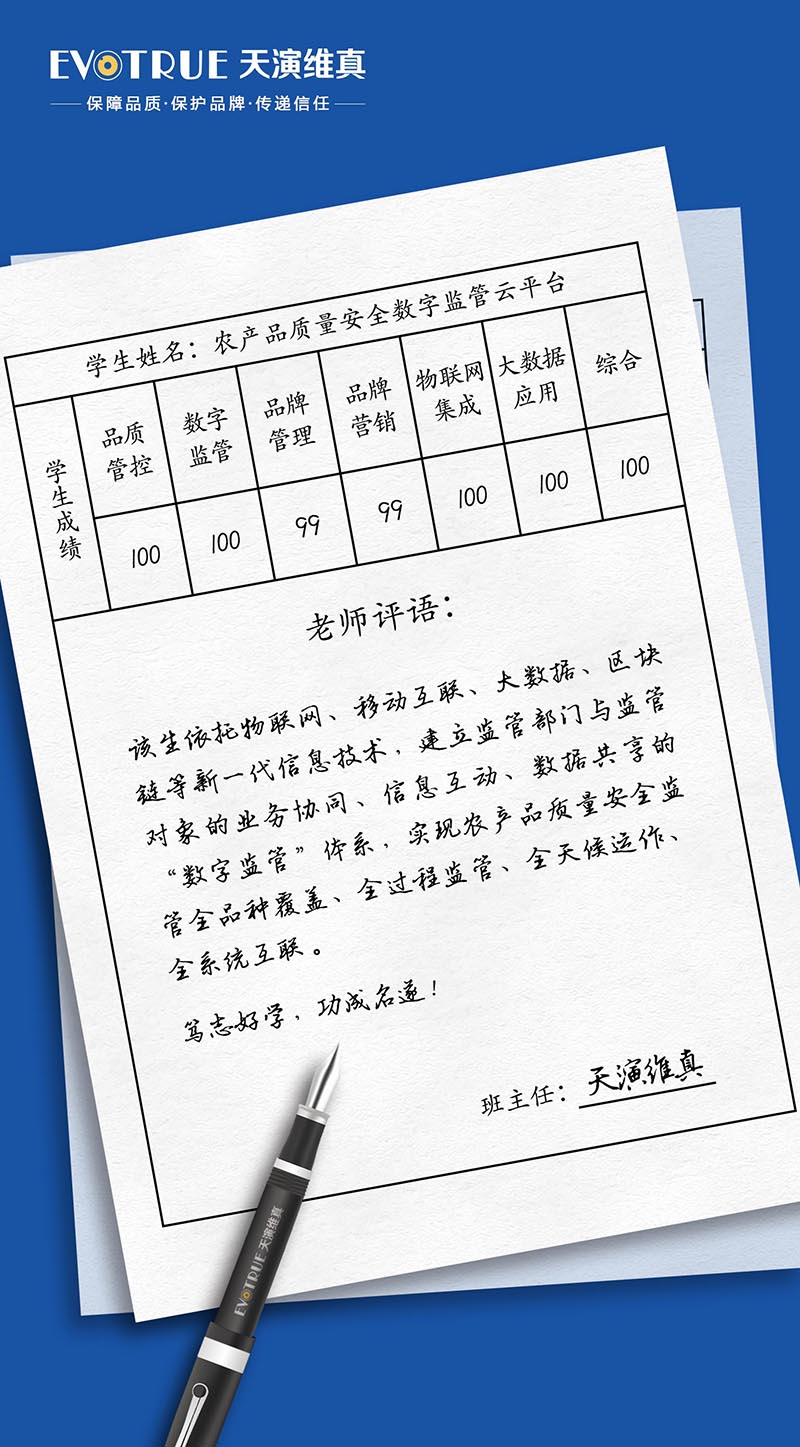 EVOTRUE 天演维真
保障品质·保护品牌·传递信任
学生姓名：农产品质量安全数字监管云平台
学生成绩
品质管控
数字监管
品牌管理
品牌营销
物联网集成
大数据应用
综合
100
100
99
99
100
100
100
老师评语：
该生依托物联网、移动互联、大数据、区块
链等新一代信息技术，建立监管部门与监管
对象的业务协同、信息互动、数据共享的
“数字监管”体系，实现农产品质量安全监
管全品种覆盖、全过程监管、全天候运作、
全系统互联。
笃志好学，功成名遂！
班主任：天演维真
EVOTRUE 天演维真